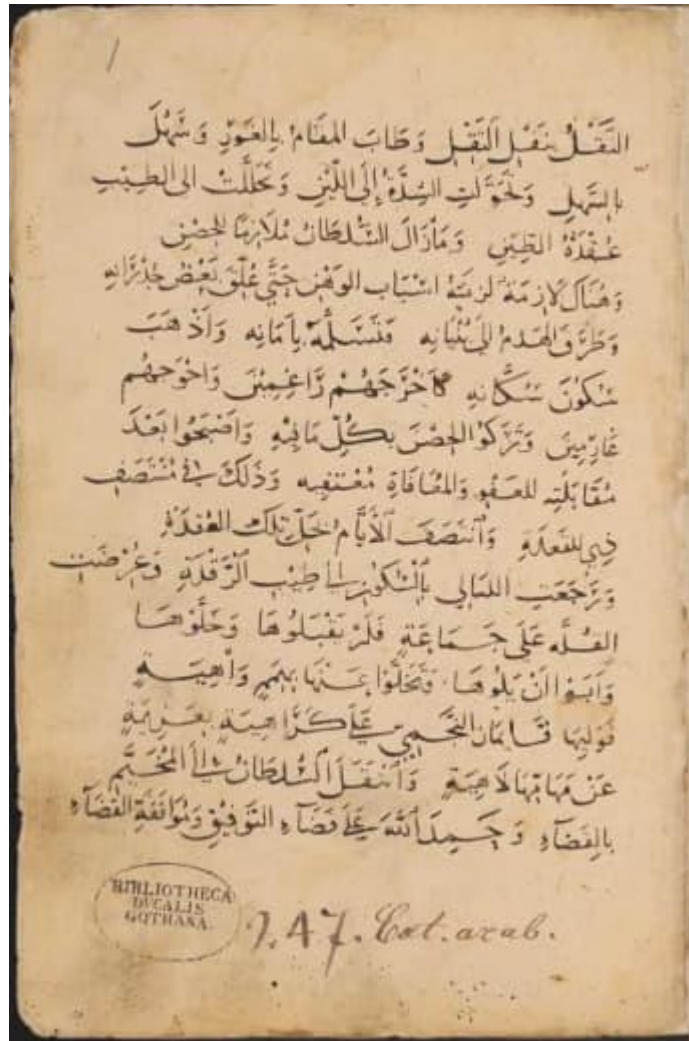 ١
الثَّقَلُ بنَقْلِ الثَّقَلِ وَطَابَ المقَامُ بِالغَوْرِ وَسَهُلَ
بالسَّهلِ وَتحَوَّلَتِ الشِّدَّةُ إِلَى اللِّينِ وَتحَلَّلَتْ الى الطيِبِ
عُقْدَةُ الطِّينِ وَمَازَالَ السُّلطَانُ مُلَازِمًا للحِصْنِ
وَهُنَاكَ لَازِمَة لزَمتهُ اسْبَاب الوَهْنِ حَتَّى عُلِّقَ بَعْضُ جُدْرَانِهِ
وَطَرَّقَ الهَدمُ إلى بُنْيَانِه فتَسَلَّمَهُ بِأمَانِه وَأذْهَبَ
سُكُونَ سُكَّانهِ فأخْرَجَهُمْ رَاغِمِيْنَ وَاخرَجهُم
غَارِمِينَ وَتَرَكوُا الحِصْنَ بكُلِّ مَافِيْهِ وَاصْبَحُوا بَعْدَ
مُقَابَلَتِه للعَفْوِ وَالمُعَافَاةِ مُعْتَفِيه وَذَلكَ في مُنْتَصَفِ
ذِي القَعدَةِ وَأنتَصَفَ الأيَّام لحَلِّ تِلكَ العُقدَةِ
وَرَجَعَتِ الليَالي بِالسُّكُونِ إلى طِيْبِ الرَّقْدَةِ وَعُرِضَتِ
القَلْعَه عَلَى جَمَاعَةٍ فَلَمْ يَقْبَلُوهَا وَخَلَّوْهَا
وَأبَوْا انْ يَلُوهَا وَتخَلَّوْا عَنْهَا بهِمَمٍ وَاهِيَةٍ
فَوَلِيهَا قَايمَاز النَّجمِيّ عَلى كَرَاهِيَةٍ بعَزِيمَةٍ
عَنْ مَهَامِّهَا لَاهِيَةٍ وَأنْتَقَلَ السُّلطَانُ إلى المُخَيَّمِ
بالفَضَآءِ وَحَمِدَ اللهَ عَلَى قَضَآءِ التَّوفِيْقِ وَمُوَافَقَةِ القَضَآءِ
BIBLIOTHECA
DVCALIS
GOTHANA.
247. Cat. arab.